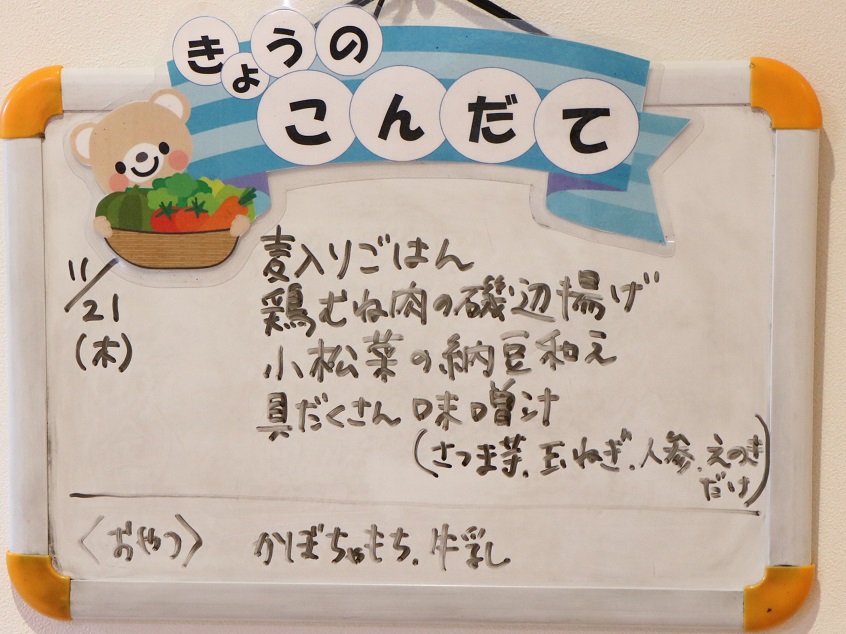 きょうの
こんだて
11/21
(木)
麦入りごはん
鶏むね肉の磯辺揚げ
小松菜の納豆和え
具だくさん味噌汁
(さつま芋、玉ねぎ、人参、えのき
だけ)
〈おやつ〉 かぼちゃもち、牛乳